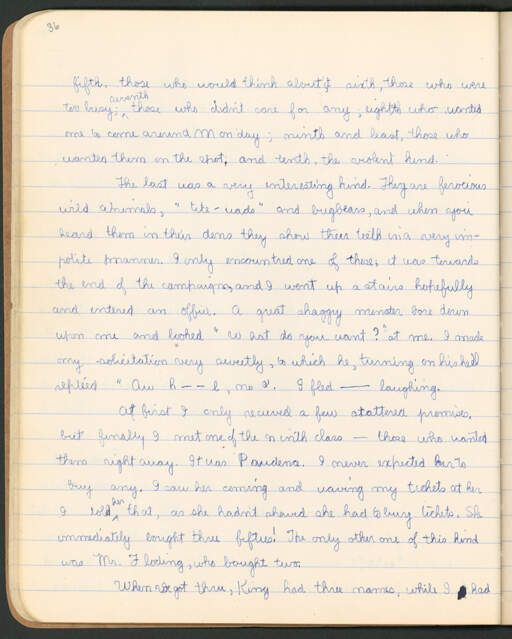 36
fifth, those who would think about it sixth, those who were
too busy; seventh those who didn't care for any, eighth who wanted
me to come around Monday; ninth and least, those who
wanted them on the spot, and tenth, the violent kind.
The last was a very interesting kind. They are ferocious
wild animals, and bugbears, and when you
beard them in their dens they show their teeth in a very im-
polite manner. I only encountred one of these, it was towards
the end of the campaign, and I went up a stairs hopefully
and entered an office. A great shaggy monster bore down
upon me and looked "What do you want?" at me. I made
my solicitation very sweetly, to which he, turning on his heel
replied "Aw h--l, no". I fled — laughing.
At first I only received a few scattered promises,
but finally I met one of the ninth class — those who wanted
them right away. It was Prudence. I never expected her to
buy any. I saw her coming and waving my tickets at her
I told her that, as she hadn't shoved she had to buy tickets. She
immediately bought three fifties! The only other one of this kind
was Mr. Floding, who bought two.
When we got three, King had three names, while I had